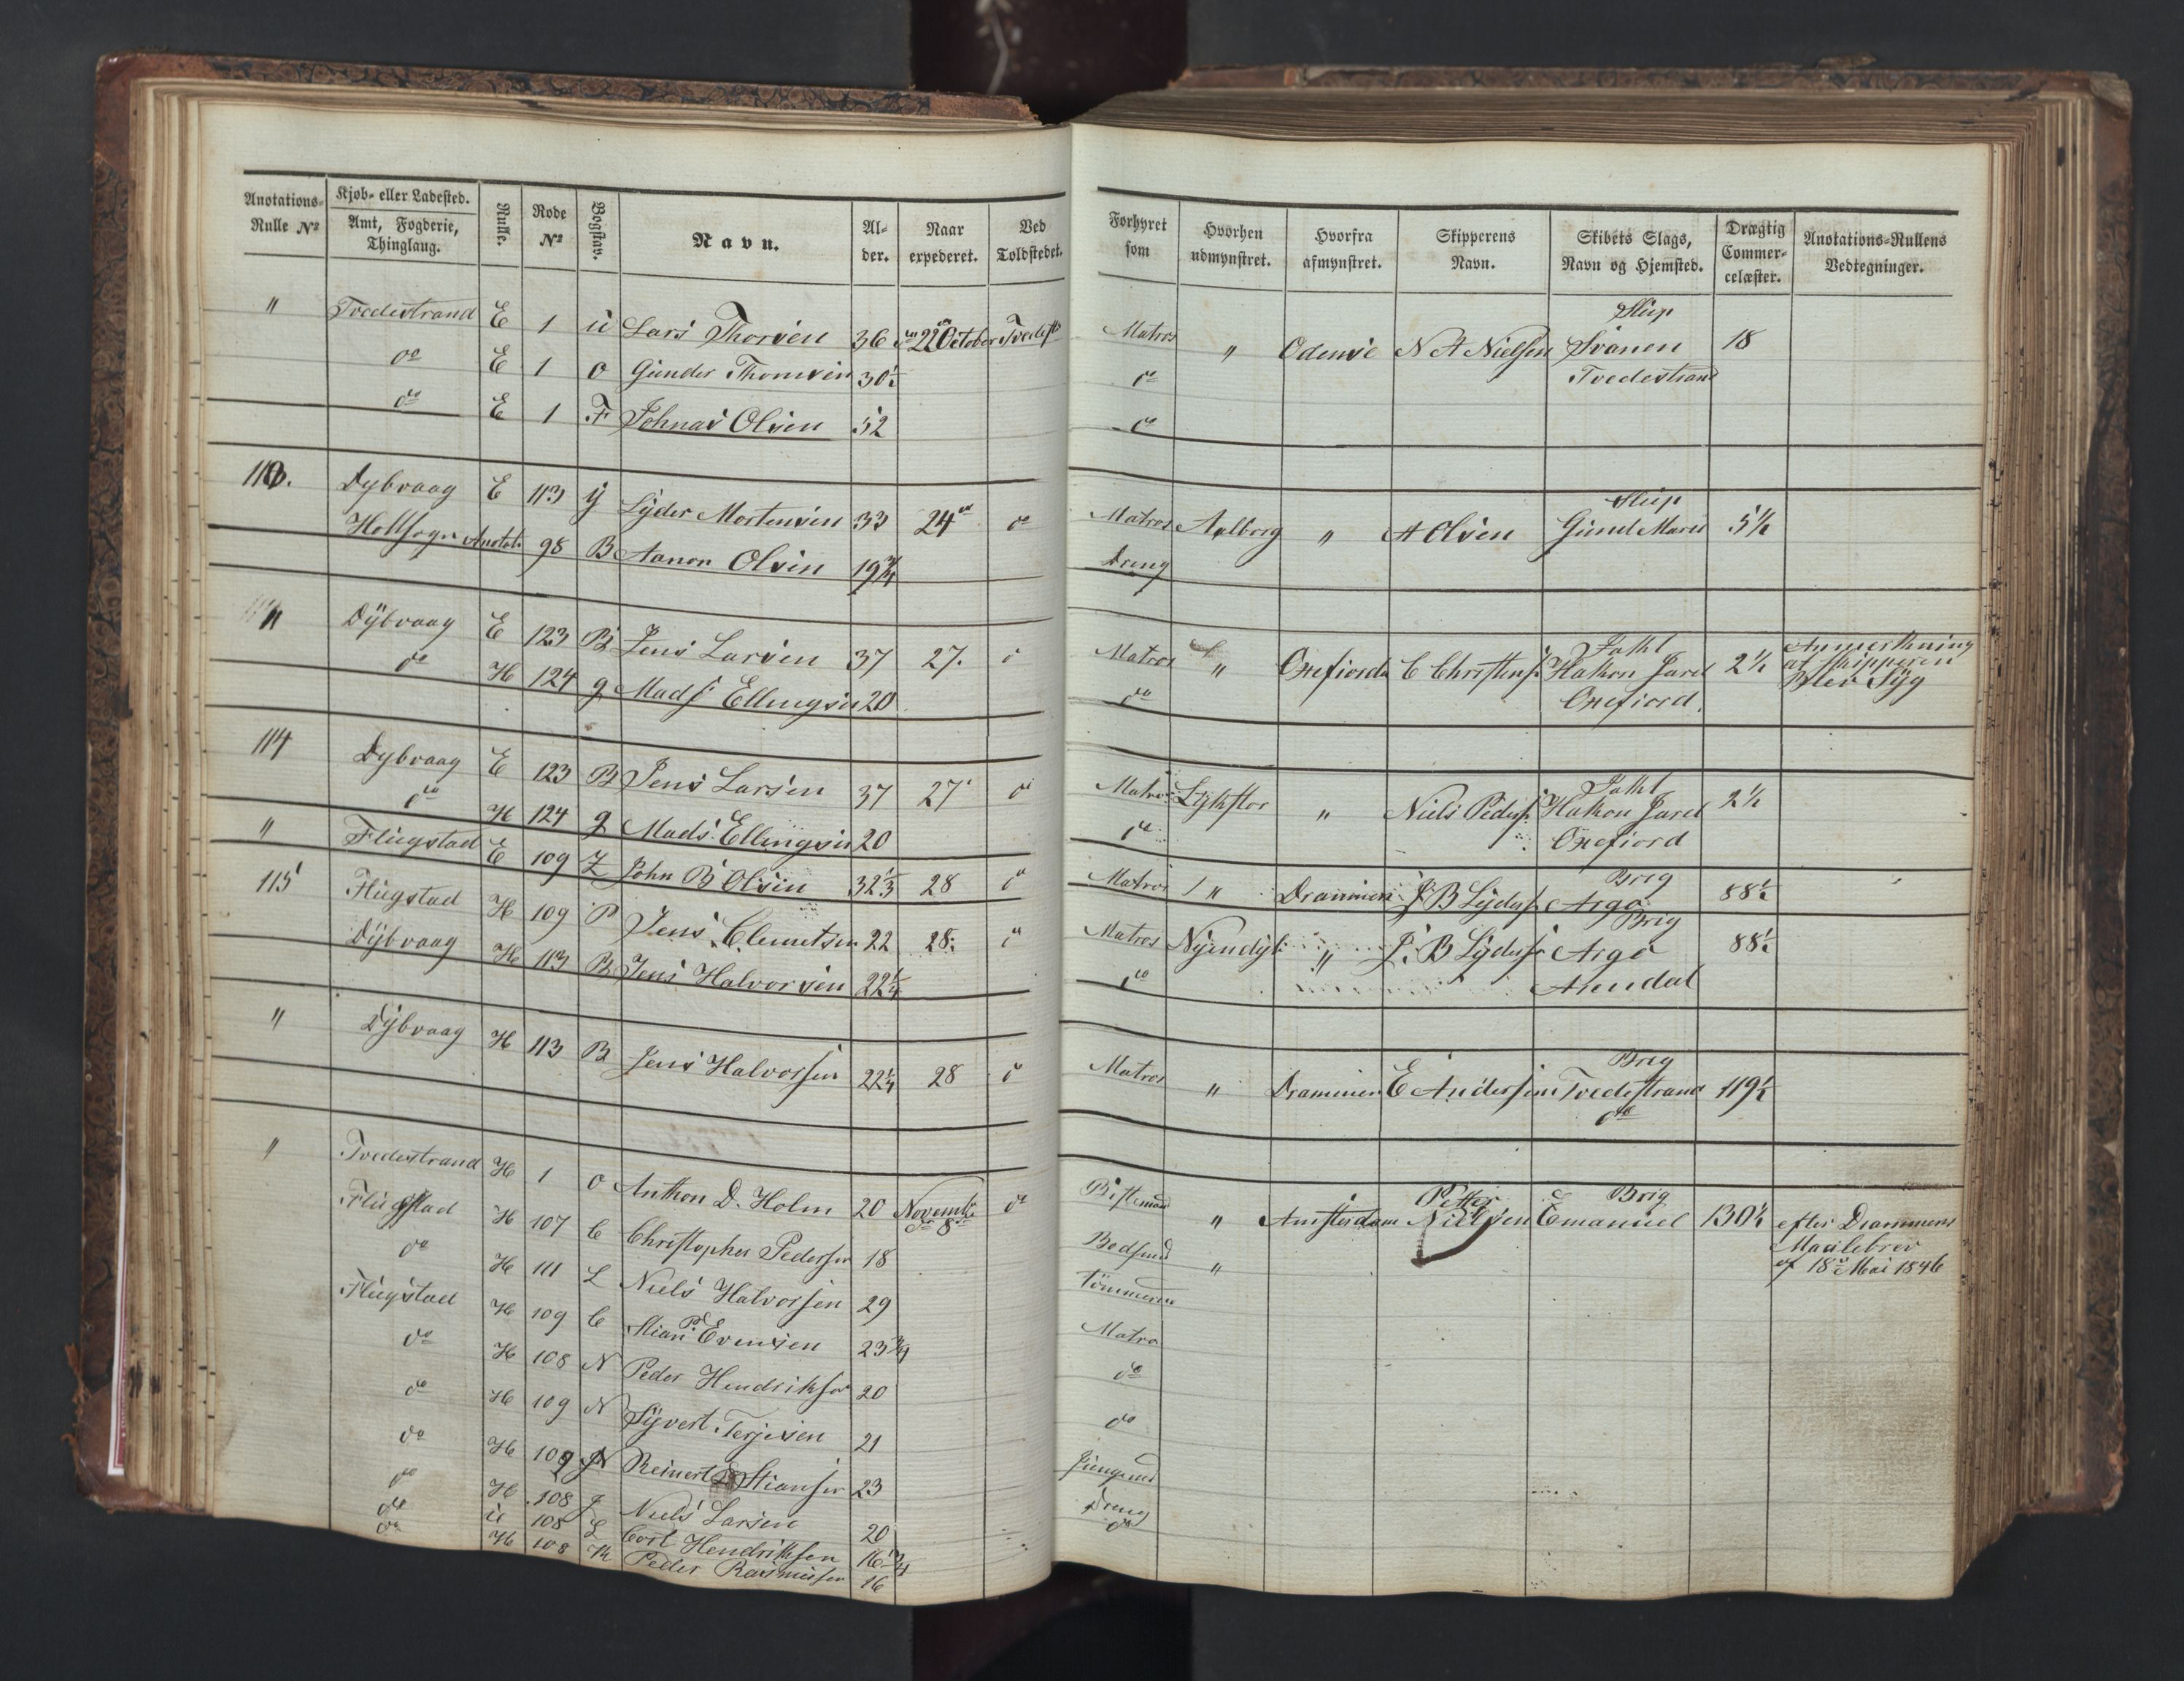 Anotations-Rulle No | Kjøb- eller Ladested. Amt, Fogderie, Thinglaug. | Rulle. | Rode No | Bogstav. | Navn. | Alder. | Naar expederet. | Ved Toldstedet.
" | Tvedestrand | E | 1 | ü | Lars Thorsen | 36 | 22 October | Tvedest
do | E | 1 | O | Gunder Thomsen | 30½
do | E | 1 | F | Johnas Olsen | 52
113. | Dybvaag | E | 113 | y | Lyder Mortensen | 33 | 24 | do
Holtsogn | Anotat. | 98 | B | Aanon Olsen | 19¾
" | Dybvaag | E | 123 | B | Jens Larsen | 37 | 27. | do
do | H | 124 | g | Mads Ellingsen | 20
114 | Dybvaag | E | 123 | B | Jens Larsen | 37 | 27 | do
do | H | 124 | g | Mads Ellingsen | 20
" | Flugstad | E | 109 | Z | John B Olsen | 32⅓ | 28 | do
115 | Flugstad | H | 109 | P | Jens Clemetsen | 22 | 28. | do
Dybvaag | H | 113 | B | Jens Halvorsen | 22¼
" | Dybvaag | H | 113 | B | Jens Halvorsen | 22¼ | 28 | do
" | Tvedestrand | H | 1 | O | Anthon D. Holm | 20 | Novemb 8 | do
Flugstad | H | 107 | C | Christopher Pedersen | 18
do | H | 111 | L | Niels Halvorsen | 29
Flugstad | H | 109 | C | Stian P. Evensen | 23¾
do | H | 108 | N | Peder Hendriksen | 20
do | H | 109 | N | Syvert Terjesen | 21
do | H | 109 | N | Reinert Stiansen | 23
do | H | 108 | J | Niels Larsen | 20
do | ü | 108 | L | Cort Hendriksen | 16¾
do | H | 108 | K | Peder Rasmusen | 16
Forhyret som | Hvorhen udmynstret. | Hvorfra afmynstret. | Skipperens Navn. | Skibets Slags, Navn og Hjemsted. | Drægtig Commercelæster. | Anotations-Rullens Vedtegninger.
Slup
Matros | " | Odense | N A Nielsen | Svanen | 18
do | Tvedestrand
do
Slup
Matros | Aalborg | " | A Olsen | Gunel Marie | 5½
Dreng
Jakt | Anmerkning
Matros | " | Oxefiorden | C Christens | Hakon Jarel | 2½ | at skipperen
do | Oxefiord. | Blev Syg
Jakt
Matros | Lykstor | " | Niels Peders | Hakon Jarel | 2½
do | Oxefiord
Brig
Matros | " | Drammen | J B Lyders | Argo | 88½
Brig
Matros | Nyendyb | " | J. B Lyders | Argo | 88½
do | Arendal
Brig
Matros | " | Drammen | E Andersen | Tvedestrand | 119½
do
Petter | Brig
Bestemand | " | Amsterdam | Nielsen | Emanuel | 130½ | efter Drammens
Maalebrev
Bødsmd | " | af 18 Mai 1846
tømmerm
Matros
do
do
Jungmd
Dreng
do